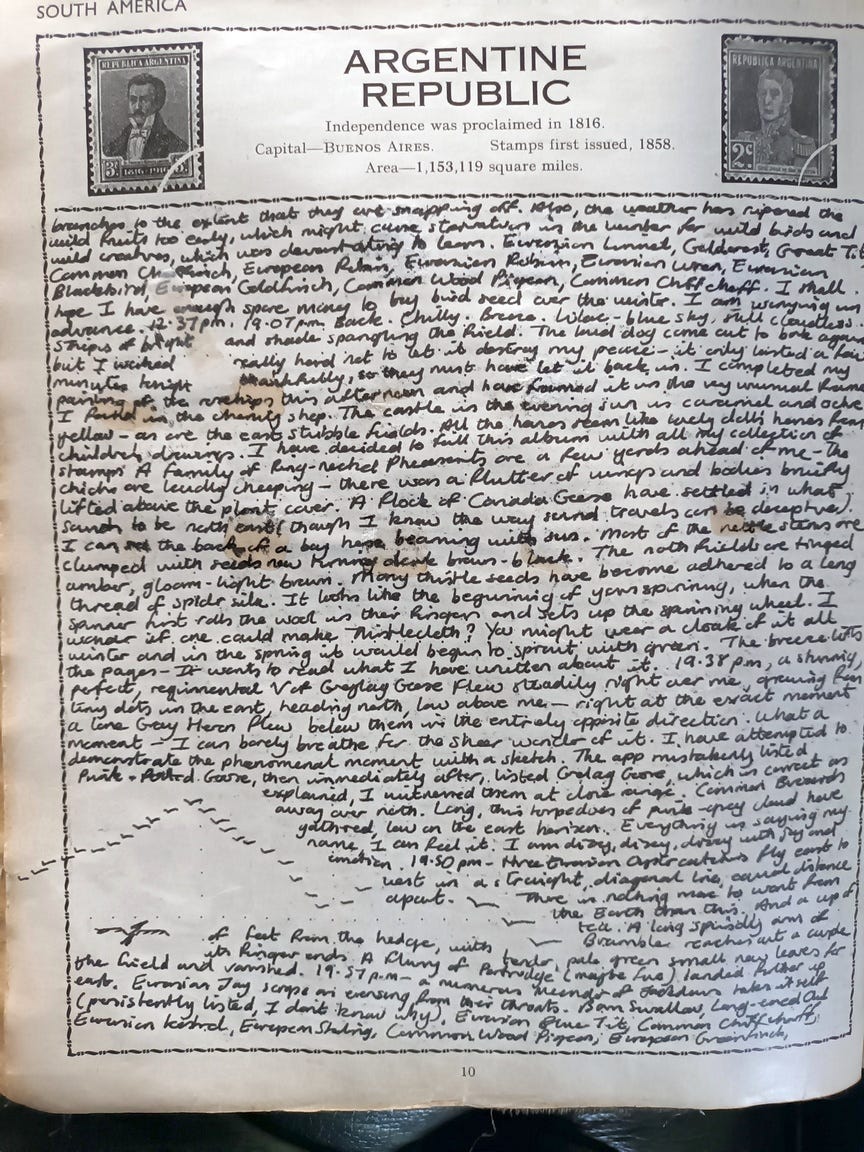 SOUTH AMERICA
REPUBLICA ARGENTINA
3c 1816-1916
REPUBLICA ARGENTINA
2c
ARGENTINE
REPUBLIC
Independence was proclaimed in 1816.
Capital—BUENOS AIRES. Stamps first issued, 1858.
Area—1,153,119 square miles.
branches to the extent that they are snapping off. Also, the weather has ripened the
wild fruits too early, which might cause starvation in the winter for wild birds and
wild creatures, which was devastating to learn. Eurasian Linnet, Goldcrest, Great Tit
Common Chaffinch, European Robin, Eurasian Robin, Eurasian Wren, Eurasian
Blackbird, European Goldfinch, Common Wood Pigeon, Common Chiffchaff. I shall
hope I have enough spare money to buy bird seed over the winter. I am worrying in
advance. 12.37pm. 19.07pm Back. Chilly. Breeze. Lilac-blue sky, still cloudless.
Strips of bright and shade spangling the field. The loud dog came out to bark again
but I worked really hard not to let it destroy my peace - it only lasted a few
minutes tonight thankfully, so they must have let it back in. I completed my
painting of the rosehips this afternoon and have framed it in the very unusual frame
I found in the charity shop. The castle in the evening sun is caramel and ochre
yellow - as are the east stubble fields. All the houses seem like lovely dolls houses from
children's drawings. I have decided to fill this album with all my collection of
stamps. A family of Ring-necked Pheasants are a few yards ahead of me - the
chicks are loudly cheeping - there was a flutter of wings and bodies briefly
lifted above the plant cover. A flock of Canada Geese have settled in what
sounds to be north east (though I know the way sound travels can be deceptive).
I can see the back of a bay horse beaming with sun. Most of the nettle stems are
clumped with seeds now turning dark brown-black. The north fields are tinged
amber, gloam-light brown. Many thistle seeds have become adhered to a long
thread of spider silk. It looks like the beginning of yarn spinning, when the
spinner first rolls the wool in their fingers and sets up the spinning wheel. I
wonder if one could make Thistlecloth? You might wear a cloak of it all
winter and in the spring it would begin to sprout with green. The breeze lifts
the pages - It wants to read what I have written about it. 19.38pm, a stunning,
perfect, regimental V of Greylag Geese flew steadily right over me, growing from
tiny dots in the east, heading north, low above me - right at the exact moment
a lone Grey Heron flew below them in the entirely opposite direction. What a
moment - I can barely breathe for the sheer wonder of it. I have attempted to
demonstrate the phenomenal moment with a sketch. The app mistakenly listed
Pink-footed Goose, then immediately after, listed Greylag Goose, which is correct as
explained, I witnessed them at close range. Common Buzzards
away over north. Long, thin torpedoes of pink-grey cloud have
gathered, low on the east horizon. Everything is saying my
name, I can feel it. I am dizzy, dizzy, dizzy with joy and
emotion. 19.50pm - three Eurasian Oystercatchers fly east to
west in a straight, diagonal line, equal distance
apart. There is nothing more to want from
the Earth than this. And a cup of
tea. A long spindly arm of
Bramble reaches out a couple
of feet from the hedge, with tender, pale green small new leaves for
its finger ends. A flurry of Partridge (maybe five) landed further up
the field and vanished. 19.57pm - a numerous of Jackdaws takes itself
east. Eurasian Jay scrape an evensong from their throats. Barn Swallow, Long-eared Owl
(persistently listed, I don't know why), Eurasian Blue Tit, Common Chiffchaff,
Eurasian Kestrel, European Starling, Common Wood Pigeon, European Greenfinch,
10